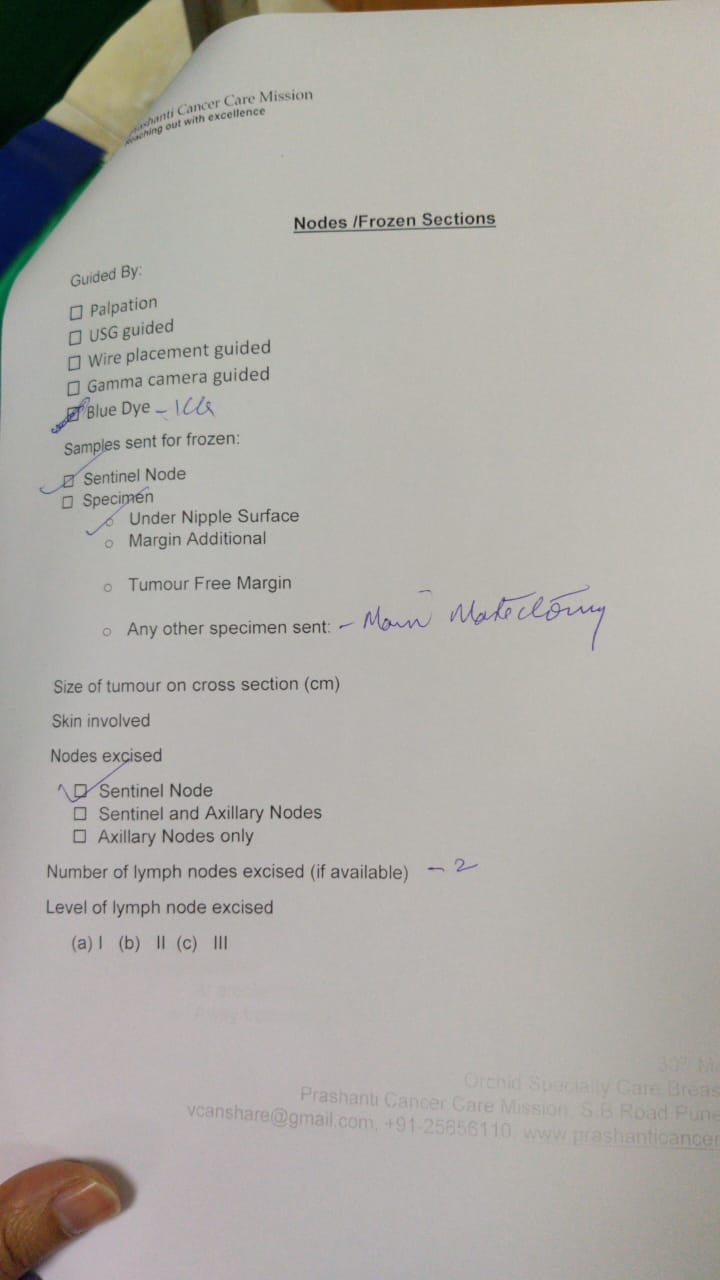 Prashanti Cancer Care Mission
Reaching out with excellence
Nodes /Frozen Sections
Guided By:
☐ Palpation
☐ USG guided
☐ Wire placement guided
☐ Gamma camera guided
☑ Blue Dye -
Samples sent for frozen:
☑ Sentinel Node
☐ Specimen
○ Under Nipple Surface
○ Margin Additional
○ Tumour Free Margin
○ Any other specimen sent: - Main
Size of tumour on cross section (cm)
Skin involved
Nodes excised
☑ Sentinel Node
☐ Sentinel and Axillary Nodes
☐ Axillary Nodes only
Number of lymph nodes excised (if available) - 2
Level of lymph node excised
(a) I (b) II (c) III
Orchid Specialty Care Breas
Prashanti Cancer Care Mission, S.B.Road Pune
vcanshare@gmail.com, +91-25656110, www.prashanticancer